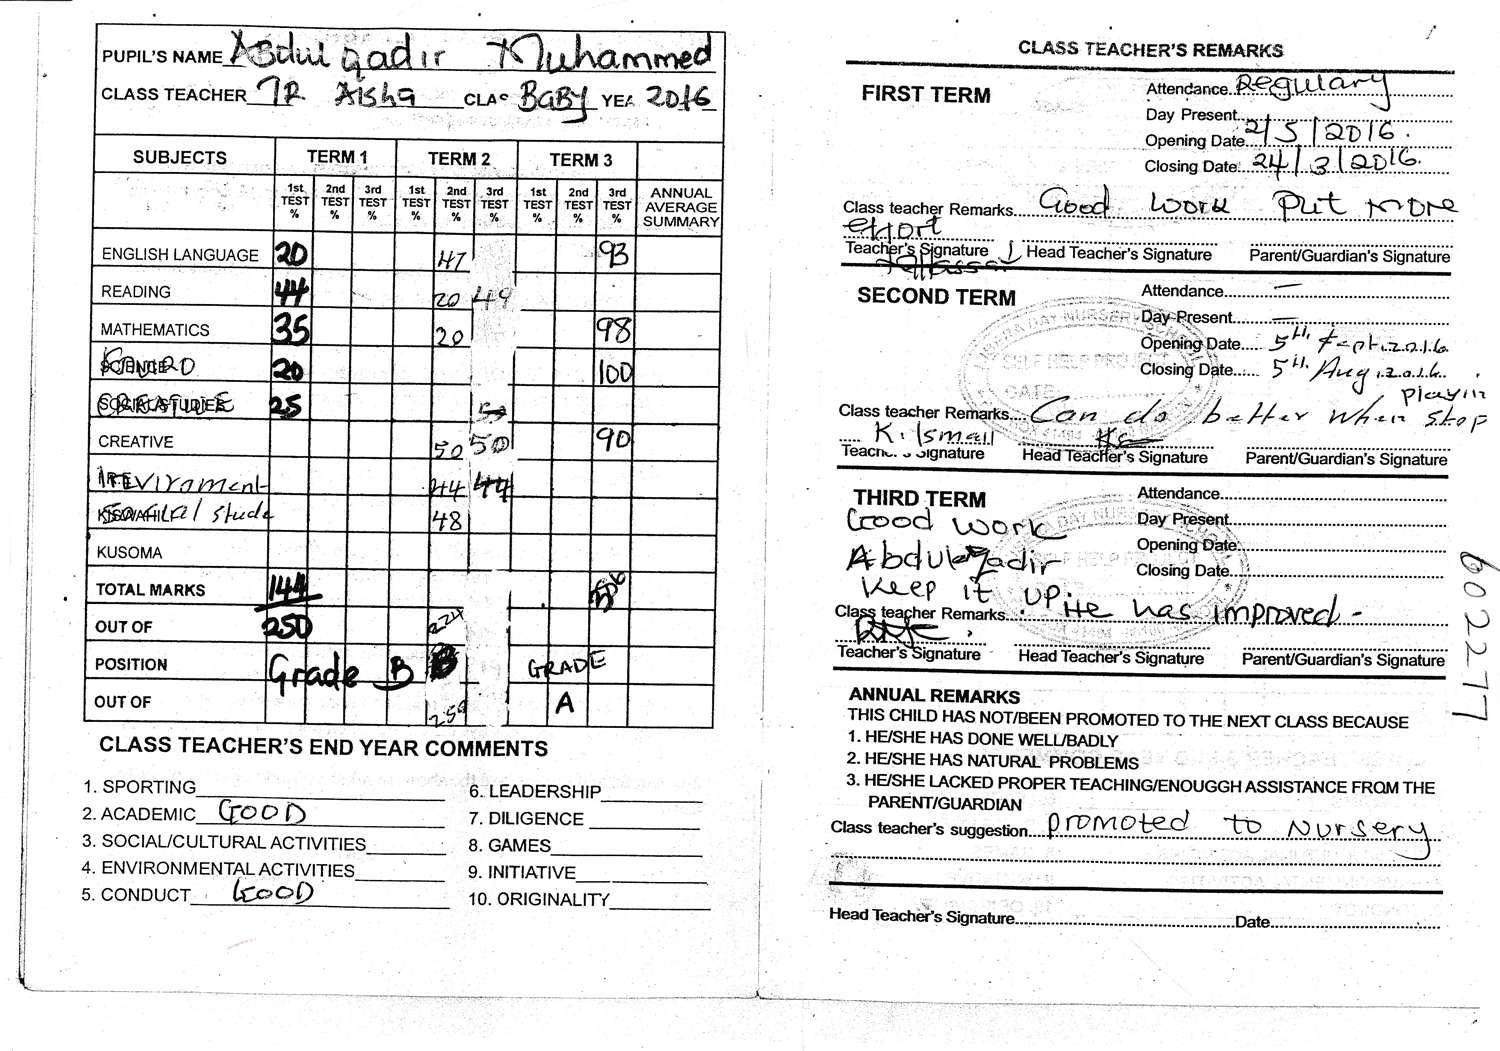 PUPIL'S NAME Abdulqadir Muhammed
CLASS TEACHER TR Aisha CLAS BaBY YEA 2016
SUBJECTS TERM 1 TERM 2 TERM 3
1st TEST % 2nd TEST % 3rd TEST % 1st TEST % 2nd TEST % 3rd TEST % 1st TEST % 2nd TEST % 3rd TEST % ANNUAL AVERAGE SUMMARY
ENGLISH LANGUAGE 20 47 93
READING 44 20 49
MATHEMATICS 35 20 98
SCIENCE 20 100
SOCIAL STUDIES CREATIVE 25
CREATIVE 50 50 90
IRE Enviroment 44 44
KISWAHILI Social stude 48
KUSOMA
TOTAL MARKS 144
OUT OF 250 224
POSITION Grade B B GRADE
OUT OF 250 A
CLASS TEACHER'S END YEAR COMMENTS
1. SPORTING
2. ACADEMIC GOOD
3. SOCIAL/CULTURAL ACTIVITIES
4. ENVIRONMENTAL ACTIVITIES
5. CONDUCT GOOD
6. LEADERSHIP
7. DILIGENCE
8. GAMES
9. INITIATIVE
10. ORIGINALITY
CLASS TEACHER'S REMARKS
FIRST TERM
Attendance Regulary
Day Present
Opening Date 2/5/2016.
Closing Date 24/3/2016.
Class teacher Remarks Good work Put more
effort
Teacher's Signature Head Teacher's Signature Parent/Guardian's Signature
SECOND TERM
Attendance —
Day Present —
Opening Date 5th Sept. 2016
Closing Date 5th Aug. 2016.
DAY NURSERY SCHOOL
SELF HELP PROJECT
DATE
Class teacher Remarks Can do better when stop playin
K. Ismail
Teacher's Signature Head Teacher's Signature Parent/Guardian's Signature
THIRD TERM
Attendance
Day Present
Opening Date
Closing Date
Good work
Abdulqadir
Keep it up.
Class teacher Remarks He has improved -
Teacher's Signature Head Teacher's Signature Parent/Guardian's Signature
ANNUAL REMARKS
THIS CHILD HAS NOT/BEEN PROMOTED TO THE NEXT CLASS BECAUSE
1. HE/SHE HAS DONE WELL/BADLY
2. HE/SHE HAS NATURAL PROBLEMS
3. HE/SHE LACKED PROPER TEACHING/ENOUGGH ASSISTANCE FROM THE
PARENT/GUARDIAN
Class teacher's suggestion promoted to Nursery
Head Teacher's Signature Date
602277